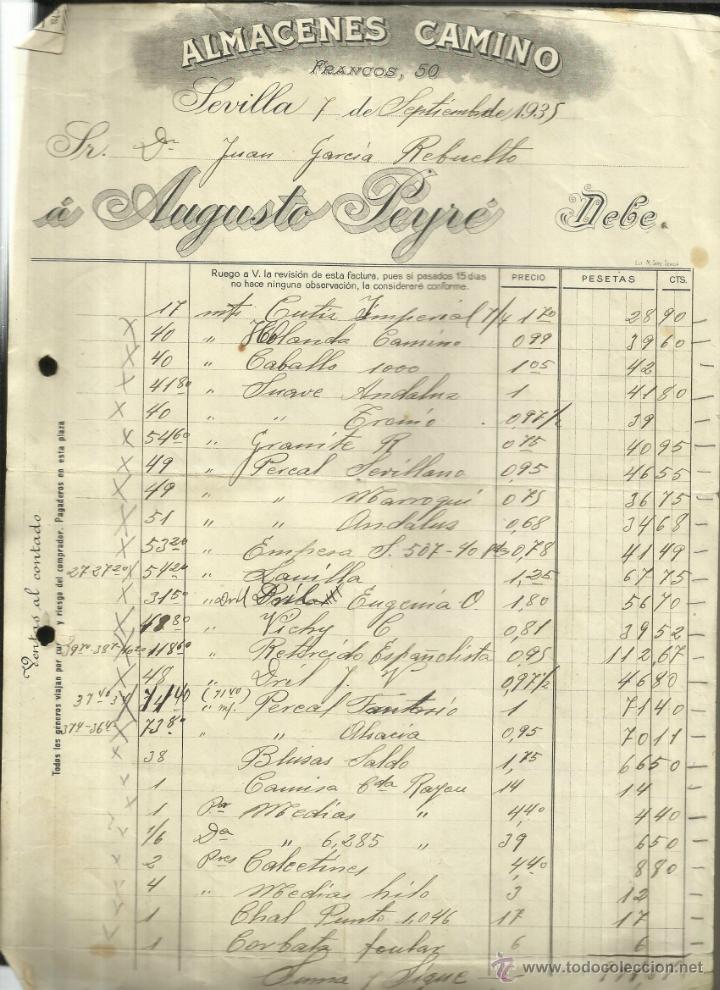 ALMACENES CAMINO
FRANCOS, 50
Sevilla 7 de Septiembre 1935
Sr. Dn Juan García Rebuelto
á Augusto Peyré Debe.
Ruego a V. la revisión de esta factura, pues si pasados 15 dias no hace ninguna observación, la consideraré conforme. PRECIO PESETAS CTS.
17 mts Cutis Imperial 7/4 1,70 28 90
40 " Holanda Camino 0,99 39 60
40 " Caballo 1000 1,05 42
41 80 " Suave Andaluz 1 41 80
40 " " 0,97 1/2 39
54 60 " Granite R 0,75 40 95
49 " Percal Sevillano 0,95 46 55
49 " " Marroquí 0,75 36 75
51 " " Andaluz 0,68 34 68
53 20 " Empresa S. 507-40 0,78 41 49
54 20 " Lanilla 1,25 67 75
31 50 " Dril Eugenia O. 1,80 56 70
48 80 " Vichy C 0,81 39 52
118 60 " Retorcido Españolista 0,95 112,67
48 " Dril J. V 0,97 1/2 46 80
(71 40) Percal Fantasio 1 71 40
73 80 " " Abacia 0,95 70 11
38 Blusas Saldo 1,75 66 50
1 Camisa Cta Rayon 14 14
1 Par Medias " 4,40 4 40
1/6 Da " 6,285 " 39 6 50
2 Pres Calcetines 4,40 8 80
4 " Medias hilo 3 12
1 Chal Punto 1,046 17 17
1 Corbata foular 6 6
Suma y Sigue
Ventas al contado
Todos los géneros viajan por cu y riesgo del comprador. Pagaderos en esta plaza
www.todocoleccion.net